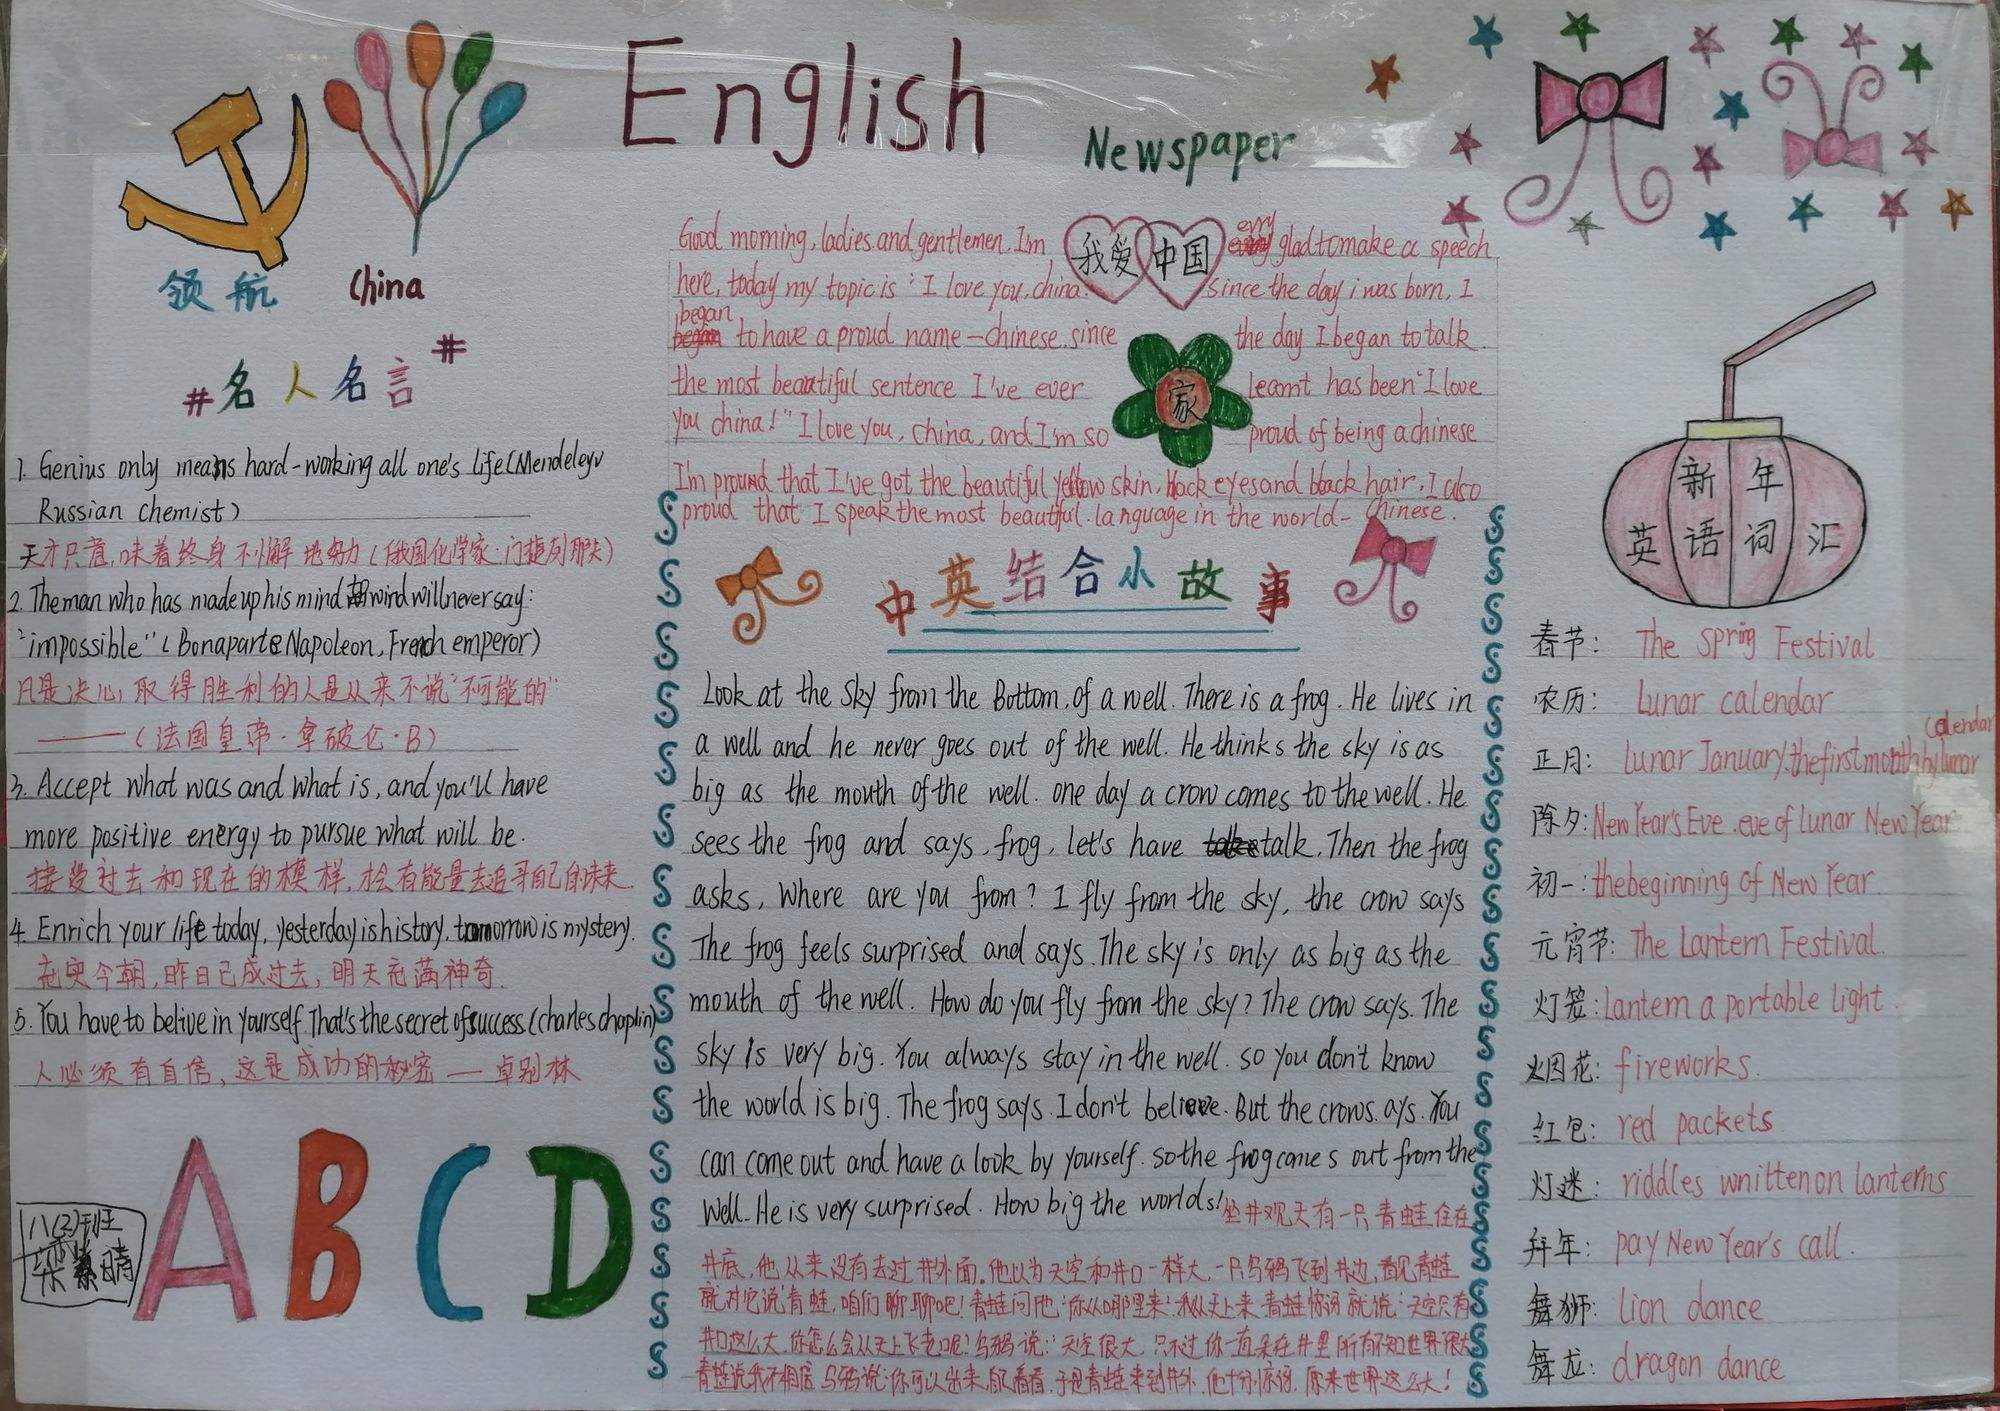 English
Newspaper
领航 China
#名人名言#
1. Genius only means hard-working all one's life (Mendeleyv
Russian chemist)
天才只意味着终身不懈地努力 (俄国化学家·门捷列那夫)
2. The man who has made up his mind wind will never say:
"impossible" (Bonaparte Napoleon, French emperor)
凡是决心取得胜利的人是从来不说"不可能的"
——(法国皇帝·拿破仑·B)
3. Accept what was and what is, and you'll have
more positive energy to pursue what will be.
接受过去和现在的模样,才会有能量去追寻自己的未来.
4. Enrich your life today, yesterday is history, tomorrow is mystery.
充实今朝,昨日已成过去,明天充满神奇.
5. You have to belive in yourself That's the secret of success (charles chaplin)
人必须有自信,这是成功的秘密 — 卓别林
A B C D
八(3)班
我爱 中国
Good morning, ladies and gentlemen. I'm evry glad to make a speech
here, today my topic is "I love you, china. since the day i was born, I
began to have a proud name — chinese. since the day I began to talk.
the most beautiful sentence I've ever learnt has been "I love
you china!" I love you, China, and I'm so proud of being a chinese
家
I'm proud that I've got the beautiful yellow skin, black eyes and black hair, I also
proud that I speak the most beautful language in the world - Chinese.
中英结合小故事
Look at the sky from the Bottom of a well. There is a frog. He lives in
a well and he never goes out of the well. He thinks the sky is as
big as the mouth of the well. one day a crow comes to the well. He
sees the frog and says, frog, let's have talk. Then the frog
asks, Where are you from? I fly from the sky, the crow says
The frog feels surprised and says. The sky is only as big as the
mouth of the well. How do you fly from the sky? The crow says. The
sky is very big. You always stay in the well. so you don't know
the world is big. The frog says. I don't believe. But the crows. ays. You
can come out and have a look by yourself. so the frog come s out from the
Well. He is very surprised. How big the worlds! 坐井观天有一只青蛙住在
井底,他从来没有去过井外面。他以为天空和井口一样大,一只乌鸦飞到井边,看见青蛙
就对它说青蛙,咱们聊聊吧!青蛙问他:你从哪里来?我从天上来青蛙惊讶就说:天空只有
井口这么大,你怎么会从天上飞来呢!乌鸦说:"天空很大,只不过你一直呆在井里所有不知世界很大
青蛙说我不相信乌鸦说:你可以出来,看看,于是青蛙来到井外,他十分惊讶,原来世界这么大!
新年
英语词汇
春节: The Spring Festival
农历: Lunar calendar
正月: Lunar January, the first month by lunar calendar
除夕: New Year's Eve. eve of lunar New Year
初一: the beginning of New Year
元宵节: The Lantern Festival.
灯笼: lantern a portable light.
烟花: fireworks.
红包: red packets
灯迷: riddles wnitten on lanterns
拜年: pay New Year's call.
舞狮: lion dance
舞龙: dragon dance